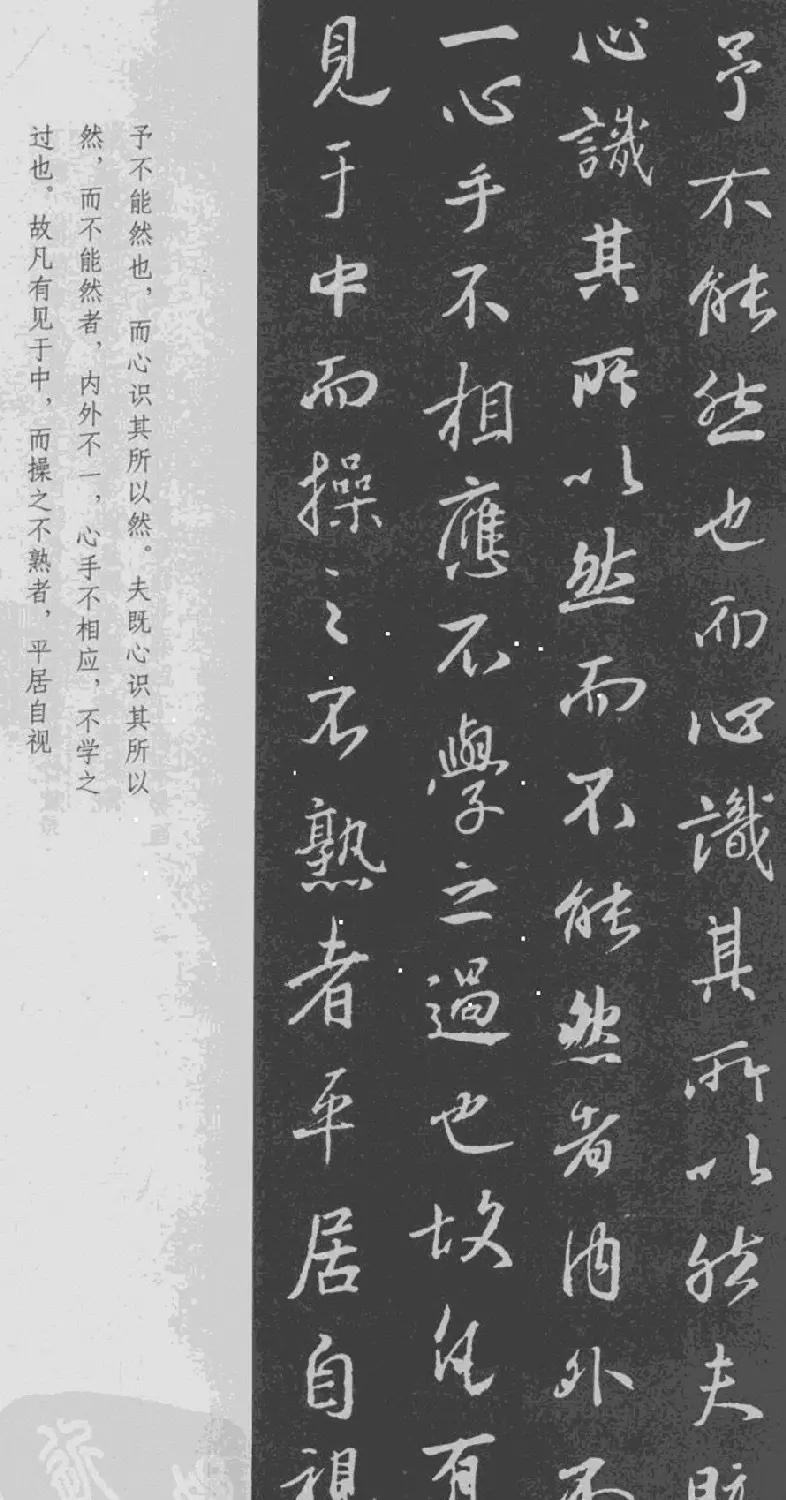 予不能然也而心識其所以然夫既
心識其所以然而不能然者內外不
一心手不相應不學之過也故凡有
見于中而操之不熟者平居自視
予不能然也，而心识其所以然。夫既心识其所以
然，而不能然者，内外不一，心手不相应，不学之
过也。故凡有见于中，而操之不熟者，平居自视